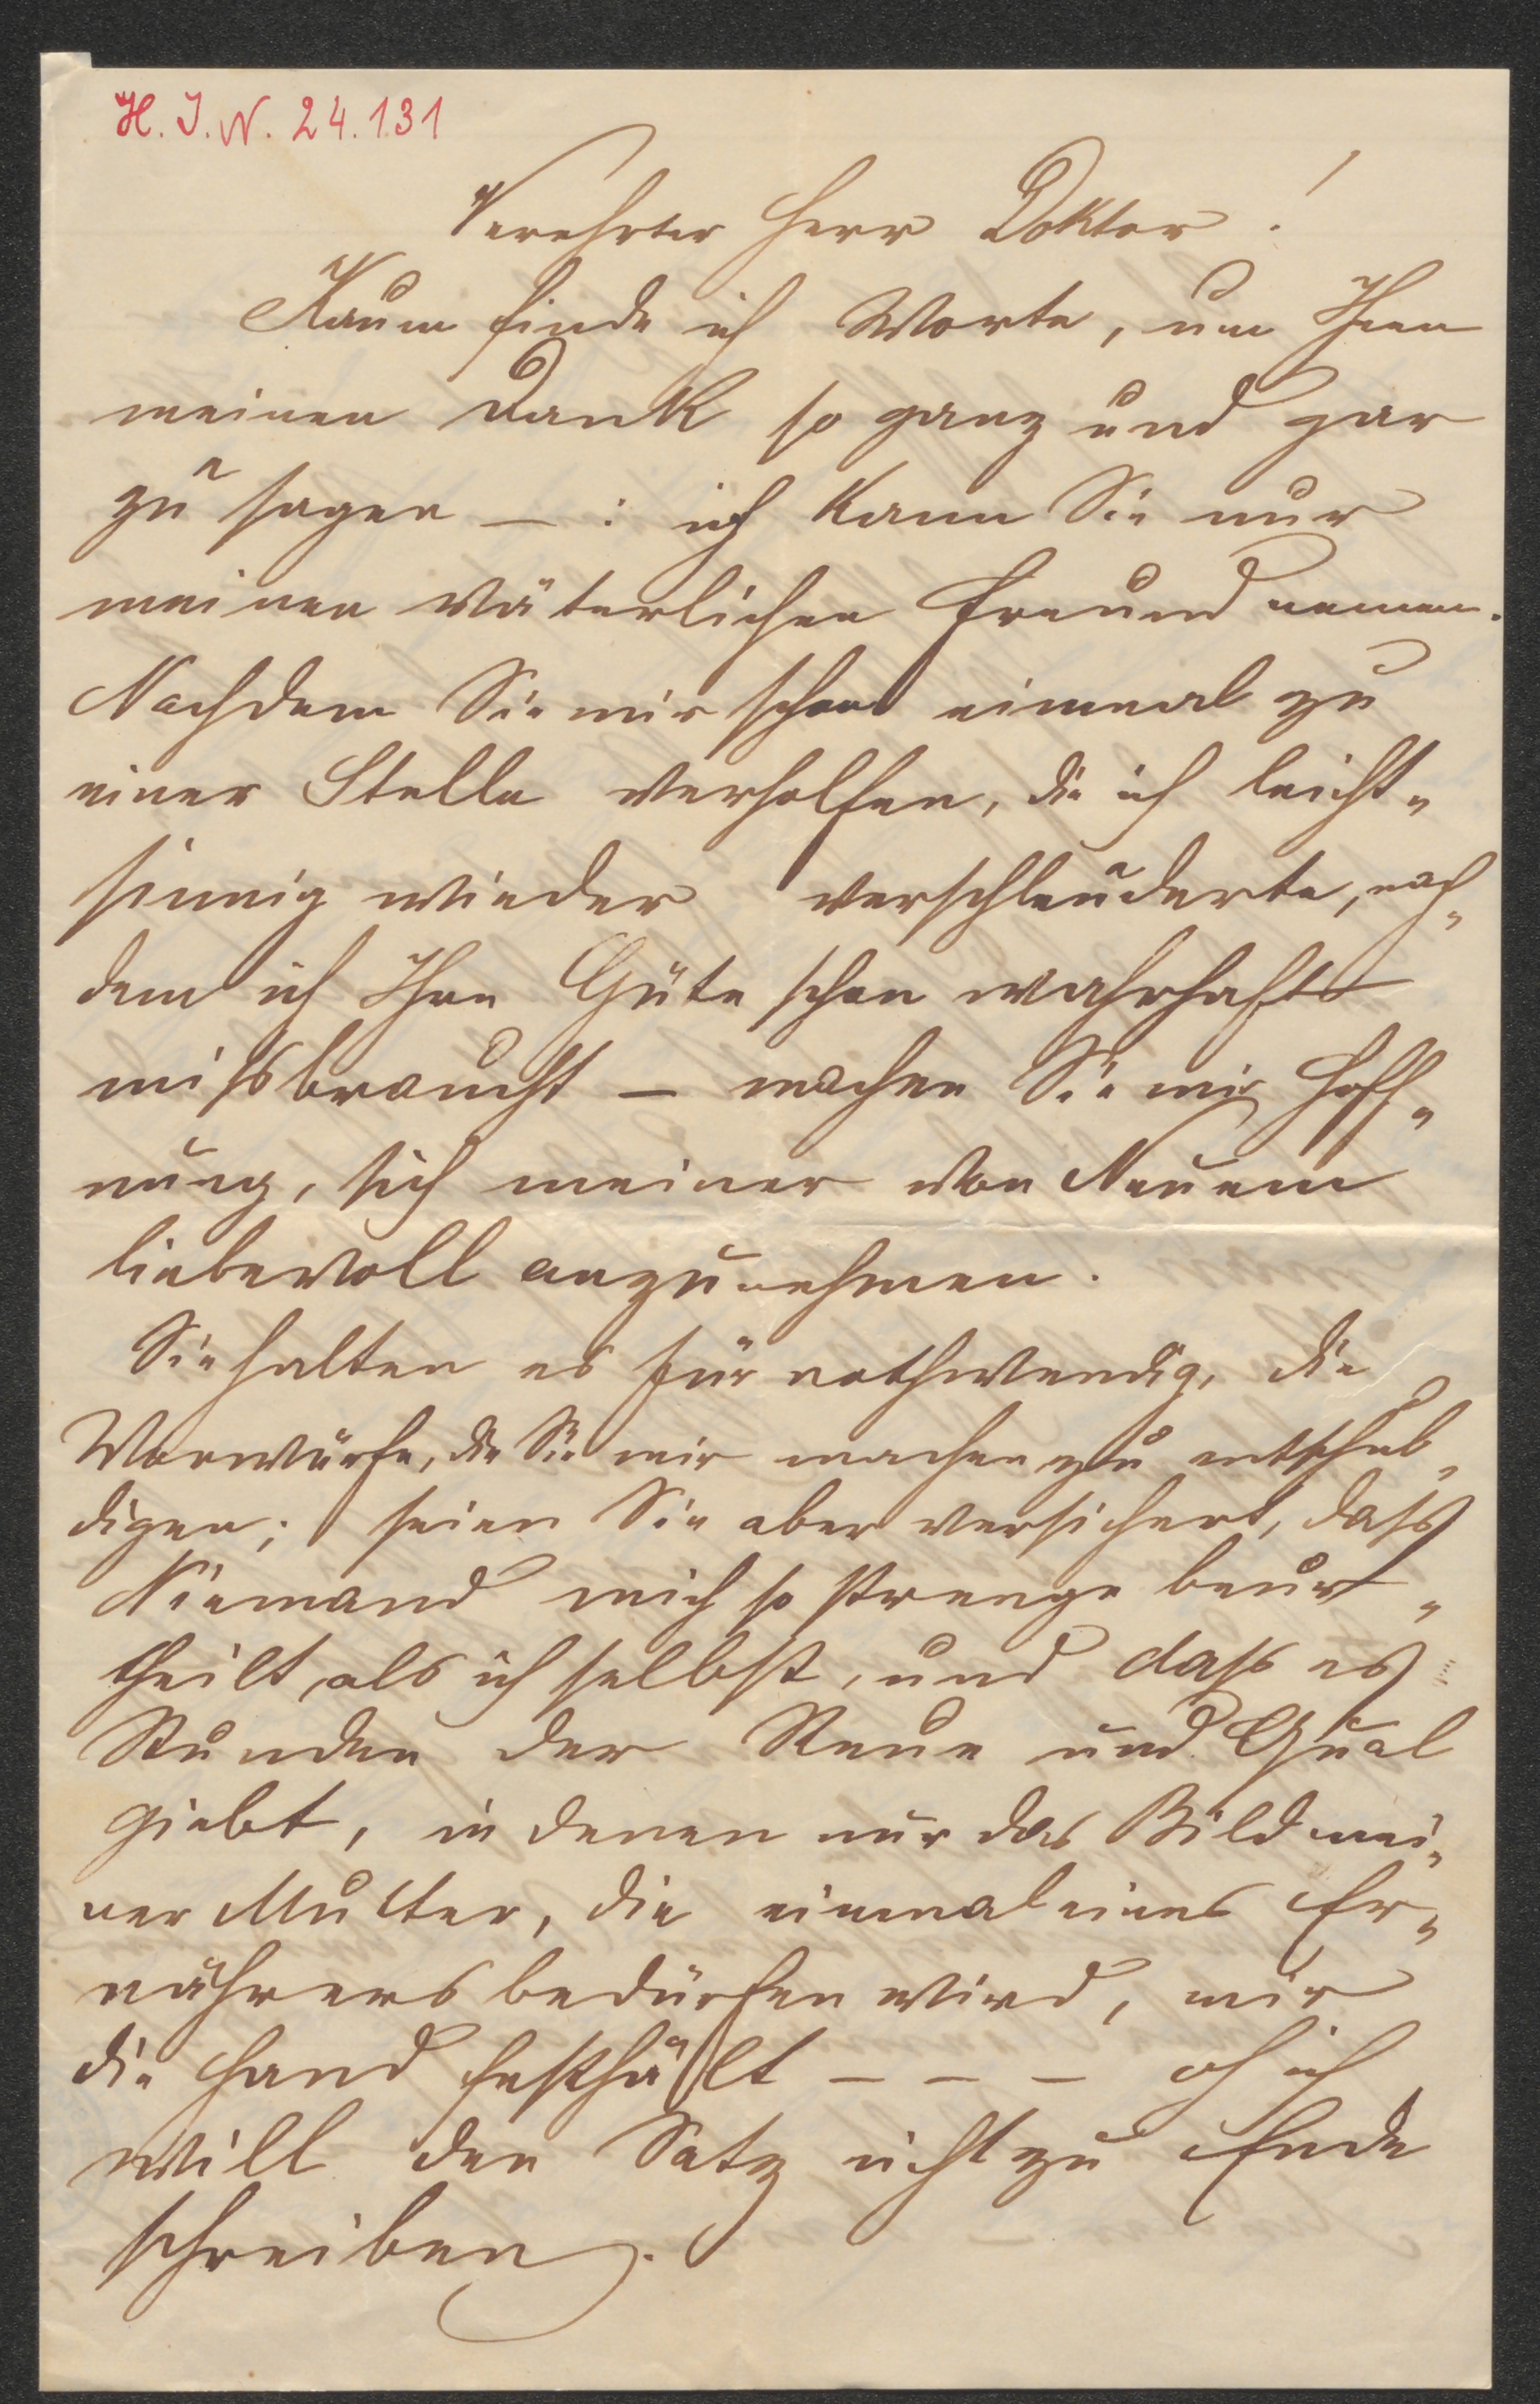 H. I. N. 24.131
Verehrter Herr Doktor!
Kaum finde ich Worte, um Ihnen
meinen Dank so ganz und gar
zu sagen — : ich kann Sie nur
meinen väterlichen Freund nennen.
Nachdem Sie mir schon einmal zu
einer Stelle verholfen, die ich leicht-
sinnig wieder verschleuderte, nach-
dem ich Ihre Güte schon wahrhaft
missbraucht — machen Sie mir Hoff-
nung, sich meiner von Neuem
liebevoll anzunehmen.
Sie halten es für nothwendig, die
Vorwürfe, die Sie mir machen zu entschul-
digen; seien Sie aber versichert, dass
Niemand mich so strenge beur-
theilt, als ich selbst, und dass es
Stunden der Reue und Qual
giebt, in denen nur das Bild mei-
ner Mutter, die einmal eines Er-
nährers bedürfen wird, mir
die Hand festhält — — — oh ich
will den Satz nicht zu Ende
schreiben.